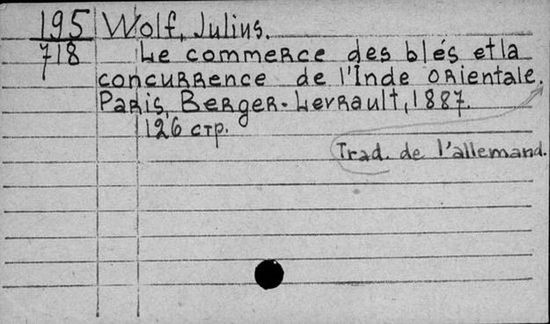 195 Wolf, Julius.
718 Le commerce des blés et la
concurrence de l'Inde orientale.
Paris, Berger-Levrault, 1887.
126 стр.
Trad. de l'allemand.